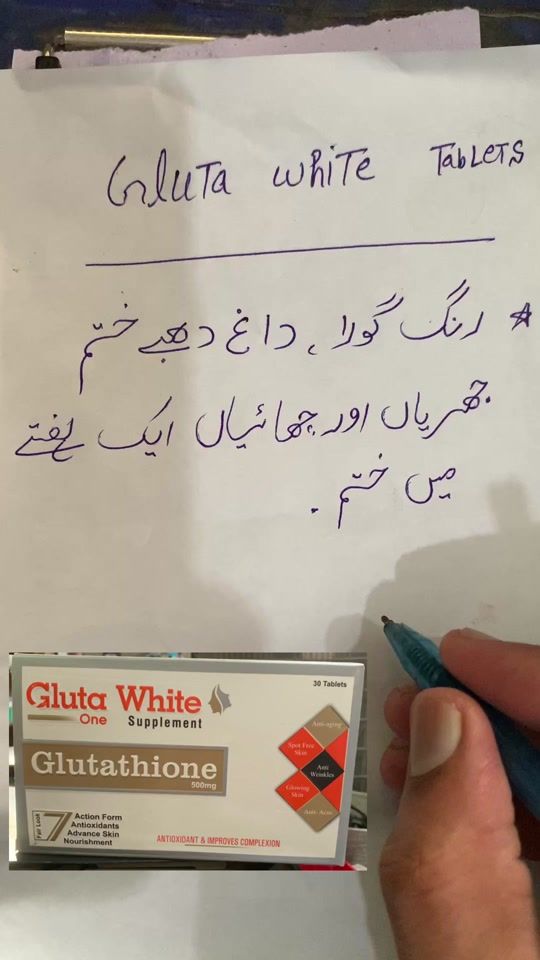 GLUTA WHITE TABLETS
* رنگ گورا، داغ دھبے ختم
جھریاں اور چھائیاں ایک ہفتے
میں ختم.
30 Tablets
Gluta White
One Supplement
Glutathione
500mg
Anti-aging
Spot Free
Skin
Anti
Wrinkles
Glowing
Skin
Anti-Acne
Fair Look
7
Action Form
Antioxidants
Advance Skin
Nourishment
ANTIOXIDANT & IMPROVES COMPLEXION